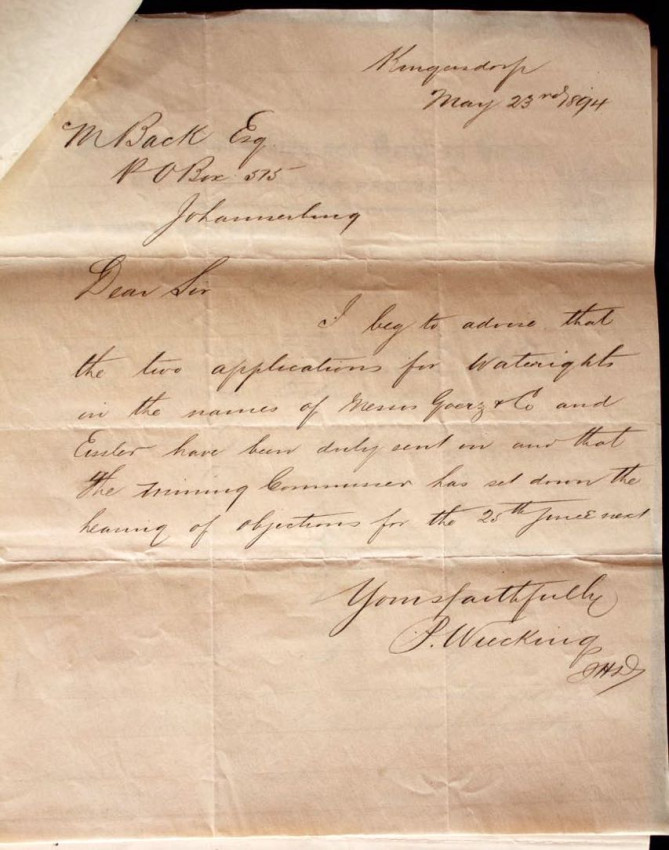 Krugersdorp
May 23rd 1894
M Back Esq
P O Box 515
Johannesburg
Dear Sir
I beg to advise that
the two applications for Waterights
in the names of Messrs Goerz & Co and
Eissler have been duly sent in and that
the Mining Commissioner has set down the
hearing of objections for the 25th June next
Yours faithfully